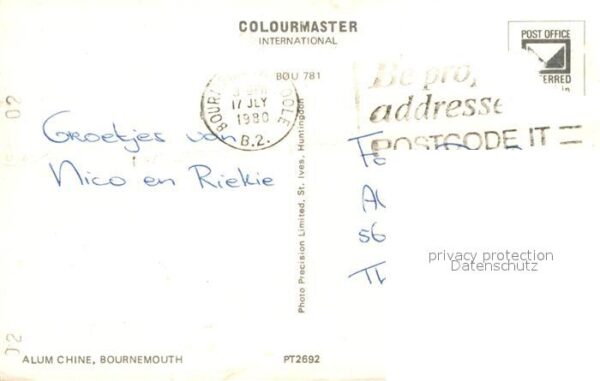 COLOURMASTER
INTERNATIONAL
POST OFFICE
BOU 781
17 JLY
1980
B.2.
Be
addresse
POSTCODE IT
02
Groetjes van
Nico en Riekie
Photo Precision Limited, St. Ives, Huntingdon
56
privacy protection
Datenschutz
02
ALUM CHINE, BOURNEMOUTH
PT2692